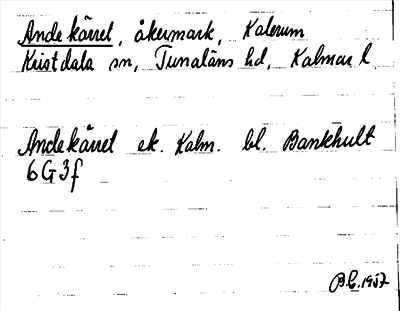 Andekärret, åkermark, Kalerum
Kristdala sn, Tunaläns hd, Kalmar l.
Andekärret ek. Kalm. bl. Bankhult
6G3f
B.E. 1957